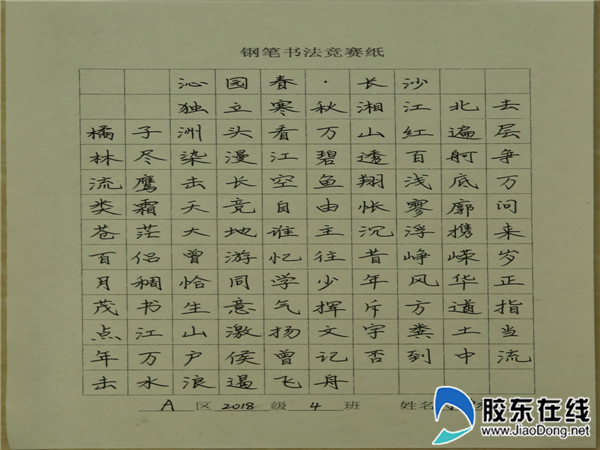 钢笔书法竞赛纸
沁园春·长沙
独立寒秋湘江北去
橘子洲头看万山红遍层
林尽染漫江碧透百舸争
流鹰击长空鱼翔浅底万
类霜天竞自由怅寥廓问
苍茫大地谁主沉浮携来
百侣曾游忆往昔峥嵘岁
月稠恰同学少年风华正
茂书生意气挥斥方遒指
点江山激扬文字粪土当
年万户侯曾记否到中流
击水浪遏飞舟
A 区 2018 级 4 班 姓名
胶东在线
www.JiaoDong.net